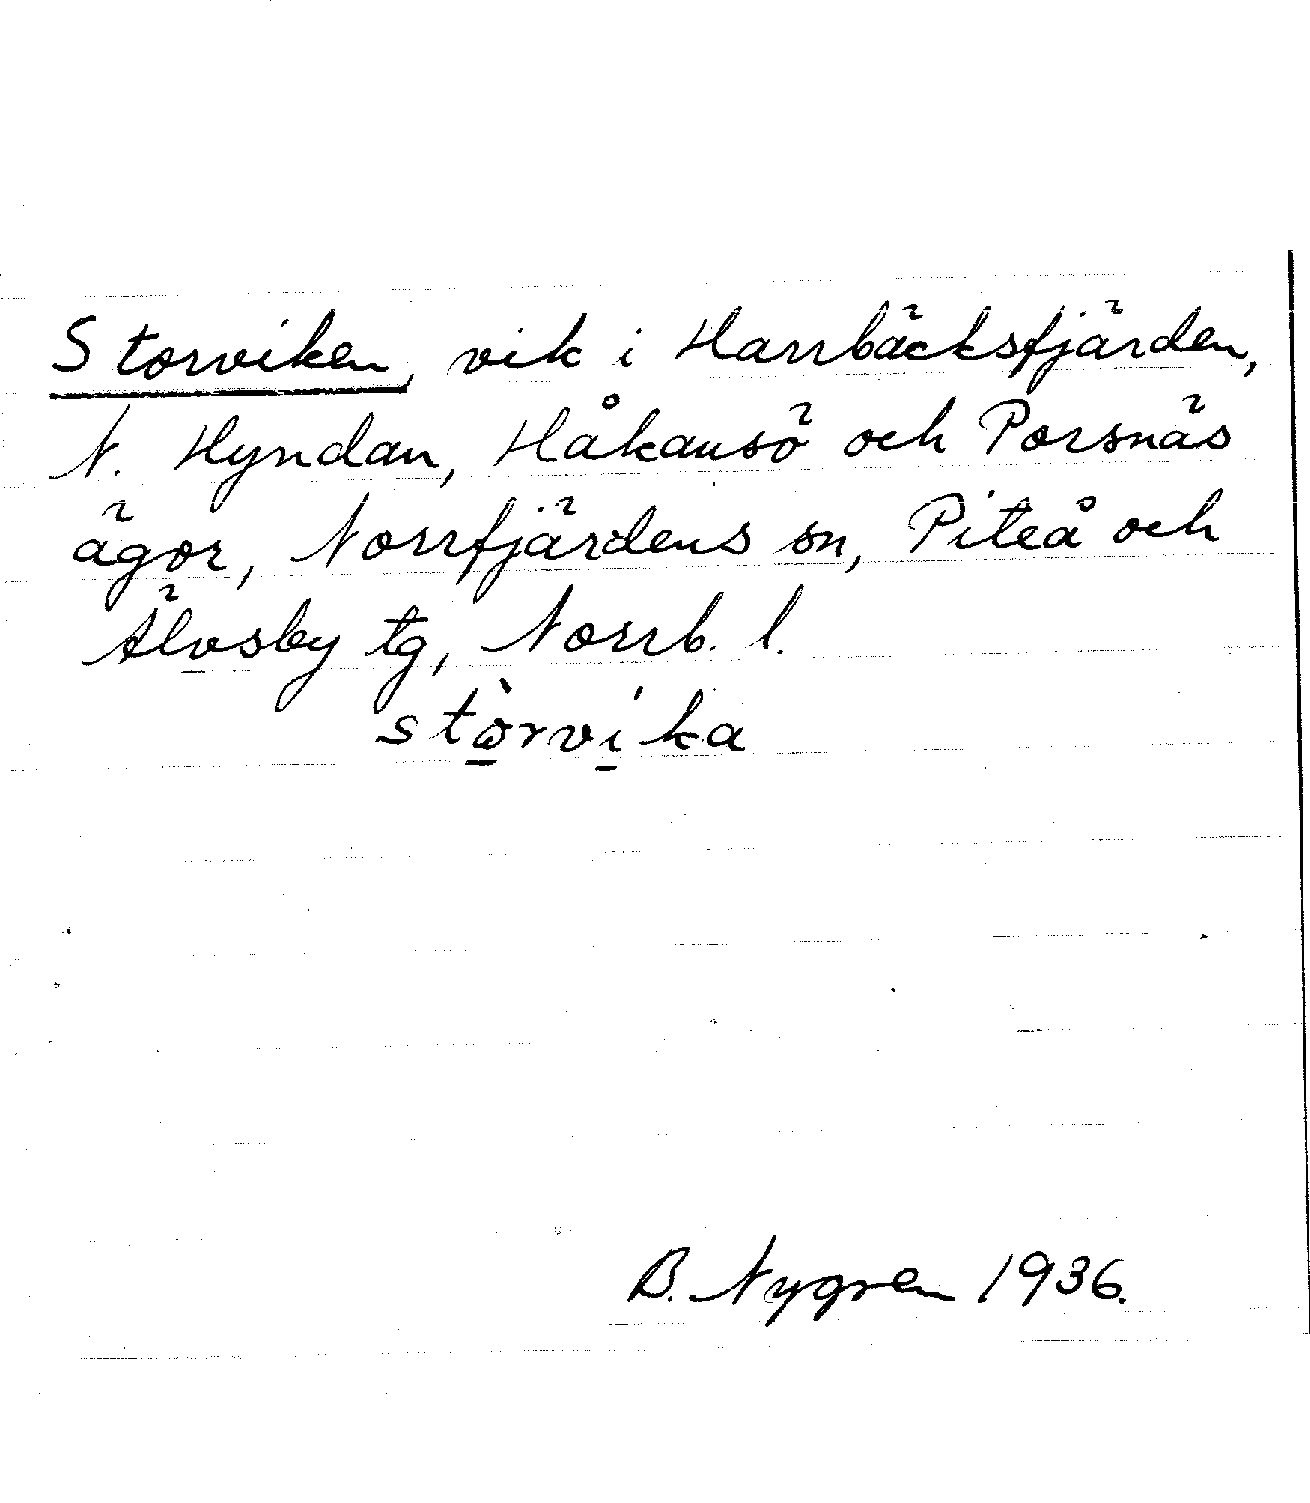 Storviken, vik i Harrbäcksfjärden,
N. Hyndan, Håkansö och Porsnäs
ägor, Norrfjärdens sn, Piteå och
Älvsby tg, Norrb. l.
stò̱rví̱ka
B. Nygren 1936.